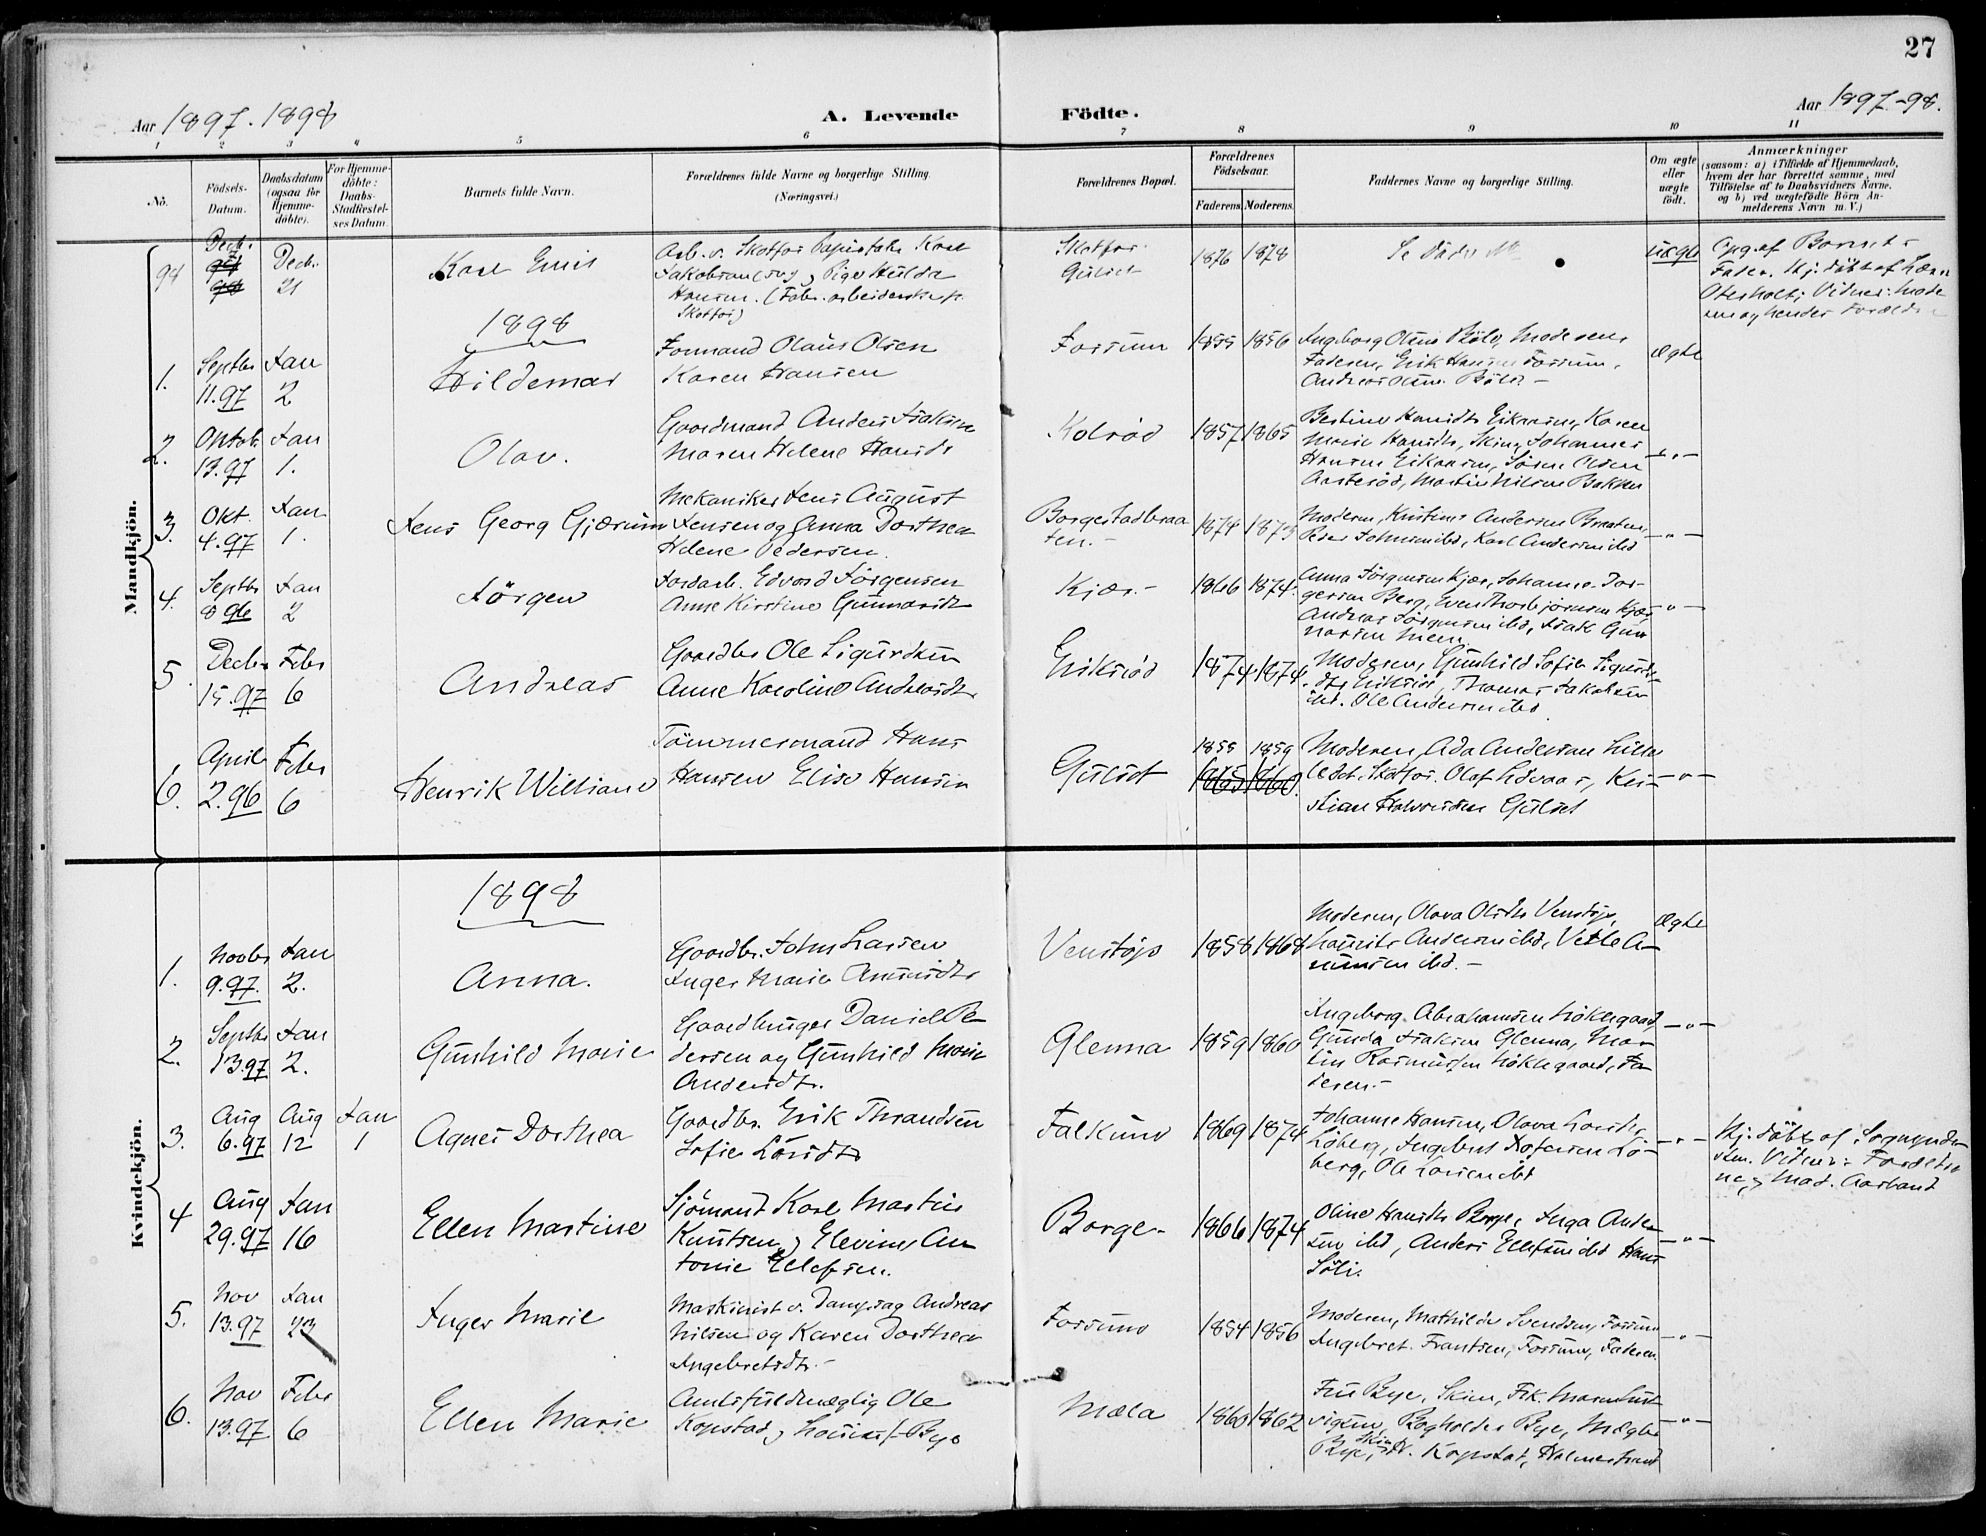 27
Aar 1897. 1898
A. Levende
Födte.
Aar 1897.-98.
1 2 3 4 5 6 7 8 9 10 11
No.
Födsels-
Datum.
Daabsdatum
(ogsaa for
Hjemme-
döbte).
For Hjemme-
döbte:
Daabs-
Stadfæstel-
ses Datum.
Barnets fulde Navn.
Forældrenes fulde Navne og borgerlige Stilling.
(Næringsvei.)
Forældrenes Bopæl.
Forældrenes
Födselsaar.
Faderens. Moderens.
Faddernes Navne og borgerlige Stilling.
Om ægte
eller
uægte
födt.
Anmærkninger
(saasom: a) i Tilfælde af Hjemmedaab,
hvem der har forrettet samme, med
Tilföielse af to Daabsvidners Navne.
og b) ved uægtefödte Börn An-
melderens Navn m. V.)
Mandkjön.
Decb.
Decb.
21
Karl
Arb. v. Skotfos Papirfabr. Karl
Jakobsen og Pige Hulda
Hansen. (Fabr. arbeiderske p.
Skotfos)
Skotfos
Gulset
1876 1878
uægte
Opg. af Barnets
Fader. Hj. döbt af Lærer
Oterholt; Vidner: Mode
ren og hendes Foræld
1898
1.
Septbr
11.97
Jan
2
Hildemar
Formand Olaus Olsen
Karen Hansen
Fossum
1855 1856
Ingeborg Olsen Bölv, Moderen,
Faderen, Erik Hansen Fossum,
Andreas Olsen
ægte
2.
Oktob.
13.97
Jan
1.
Olav.
Gaardmand Anders Isaksen
Maren Helene Hansdt
Kolröd
1857 1865
Hansdtr Eikaasen, Karen
Marie Hansdtr, Skien, Johannes
Hansen Eikaasen, Sören Olsen
Aasteröd, Martin Nilsen Bakken
-"-
3.
Okt.
4.97
Jan
1.
Jens Georg Gjærum
Mekaniker Jens August
Jensen og Anna Dorthea
Helene Pedersen.
Borgestadbraa
ten.-
1874 1873
Moderen, Kristine Andersen Braaten,
Peder Johnsen ibd, Karl Andersen ibd
-"-
4.
Septbr
8 96
Jan
2
Jörgen
Jordarb. Edvard Jörgensen
Anne Kirstine Gunnarsdt
Kjær.-
1866 1874.
Anna Jörgensen Kjær, Johanne Jör-
gensen Berg, Even Thorbjörnsen Kjær,
Andreas Jörgensen ibd, Isak Gun
narsen Meen
-"-
5.
Decbr
15.97
Febr
6
Andreas
Gaardbr Ole Sigurdsen
Anne Karoline Andersdt
Eriksröd
1874 1874.
Moderen, Gunhild Sofie Sigurds-
dtr Eriksröd, Thomas Jakobsen
ibd. Ole Andersen ibd
6.
April
2.96
Febr
6
Henrik William
Tömmermand Hans
Hansen Elise Hansen
Gulset
1855 1859
1865 1860.
Moderen, Ada Andersen Lille
Skotfos. Olaf Kri-
stian Halvorsen Gulset
-"-
Kvindekjön.
1898
1.
Novbr
9.97.
Jan
2.
Anna.
Gaardbr. John Larsen
Inger Marie Amundsdtr
Venstöp
1858 1868
Moderen, Olava Olsdtr Venstöp,
Laurits Andersen ibd, Vetle A-
mundsen ibd.-
ægte
2.
Septbr
13.97
Jan
2.
Gunhild Marie
Gaardbruger Daniel Pe
dersen og Gunhild Marie
Andersdtr.
Glenna
1859 1860
Ingeborg Abrahamsen Löklegaard
Gunda Isaksen Glenna, Mar
tin Rasmussen Löklegaard, Fa
deren.-
-"-
3.
Aug
6.97
Aug
12
Jan
1
Agnes Dorthea
Gaardbr. Erik Thrandsen
Sofie Larsdtr
Falkum
1869 1874
Johanne Hansen, Olava Larsdtr
Löberg, Ingebret Lö-
berg, Ole Larsen ibd
-"-
Hj. döbt af Sognepræ
sten. Vidner: Forældre
ne, Mad. Aarland
4
Aug
29.97
Jan
16
Ellen Martine
Sjömand Karl Martin
Knutsen, Elevine An
tonie Ellefsen.
Borge-
1866 1874
Oline Hansdtr Borge, Inga Ander
sen ibd, Anders Ellefsen ibd Hans
Söli.
-"-
5.
Nov
13.97
Jan
23
Inger Marie
Maskinist v. Dampsag Andreas
Nilsen og Karen Dorthea
Ingebretsdtr.-
Fossum
1854 1856
Moderen, Mathilde Svendsen, Fossum
Ingebret. Frantsen, Fossum, Faderen.
-"-
6.
Nov
13.97
Febr
6
Ellen Marie
Amtsfuldmægtig Ole
Kopstad, Louise f. Bye
Mæla
1860 1862
Fru Bye, Skien, Frk. Maren Lud
vigsen, Bogholder Bye, Mægler
Bye, Skien, Kopstad, Holmestrand
-"-